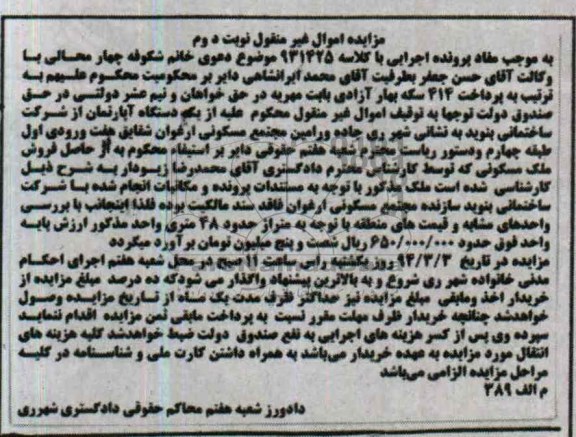 مزایده اموال غیر منقول نوبت دوم
به موجب مفاد پرونده اجرایی با کلاسه ۹۳۱۴۲۵ موضوع دعوی خانم شکوفه چهار محالی با
وکالت آقای حسن جعفر بطرفیت آقای محمد ایرانشاهی دایر بر محکومیت محکوم علیهم به
ترتیب به پرداخت ۴۱۴ سکه بهار آزادی بابت مهریه در حق خواهان و نیم عشر دولتی در حق
صندوق دولت توجها به توقیف اموال غیر منقول محکوم علیه از یک دستگاه آپارتمان از شرکت
ساختمانی بنوید به نشانی شهر ری جاده ورامین مجتمع مسکونی ارغوان شقایق هفت ورودی اول
طبقه چهارم ودستور ریاست محترم شعبه هفتم حقوقی دایر بر استیفاء محکوم به از حاصل فروش
ملک مسکونی که توسط کارشناس محترم دادگستری آقای محمدرضا زیودار به شرح ذیل
کارشناسی شده است ملک مذکور با توجه به مستندات پرونده و مکاتبات انجام شده با شرکت
ساختمانی بنوید سازنده مجتمع مسکونی ارغوان فاقد سند مالکیت بوده فلذا اینجانب با بررسی
واحدهای مشابه و قیمت های منطقه با توجه به متراژ حدود ۳۸ متری واحد مذکور ارزش پایه
واحد فوق حدود ۶۵۰/۰۰۰/۰۰۰ ریال شصت و پنج میلیون تومان برآورد میگردد
مزایده در تاریخ ۹۴/۳/۳ روز یکشنبه راس ساعت ۱۱ صبح در محل شعبه هفتم اجرای احکام
مدنی خانواده شهر ری شروع و به بالاترین پیشنهاد واگذار می شود که ده درصد مبلغ مزایده از
خریدار اخذ ومابقی مبلغ مزایده نیز حداکثر ظرف مدت یک ماه از تاریخ مزایده وصول
خواهدشد چنانچه خریدار ظرف مهلت مقرر نسبت به پرداخت مابقی ثمن مزایده اقدام ننماید
سپرده وی پس از کسر هزینه های اجرایی به نفع صندوق دولت ضبط خواهدشد کلیه هزینه های
انتقال مورد مزایده به عهده خریدار می‌باشد به همراه داشتن کارت ملی و شناسنامه در کلیه
مراحل مزایده الزامی می‌باشد
م الف ۳۸۹
دادورز شعبه هفتم محاکم حقوقی دادگستری شهرری